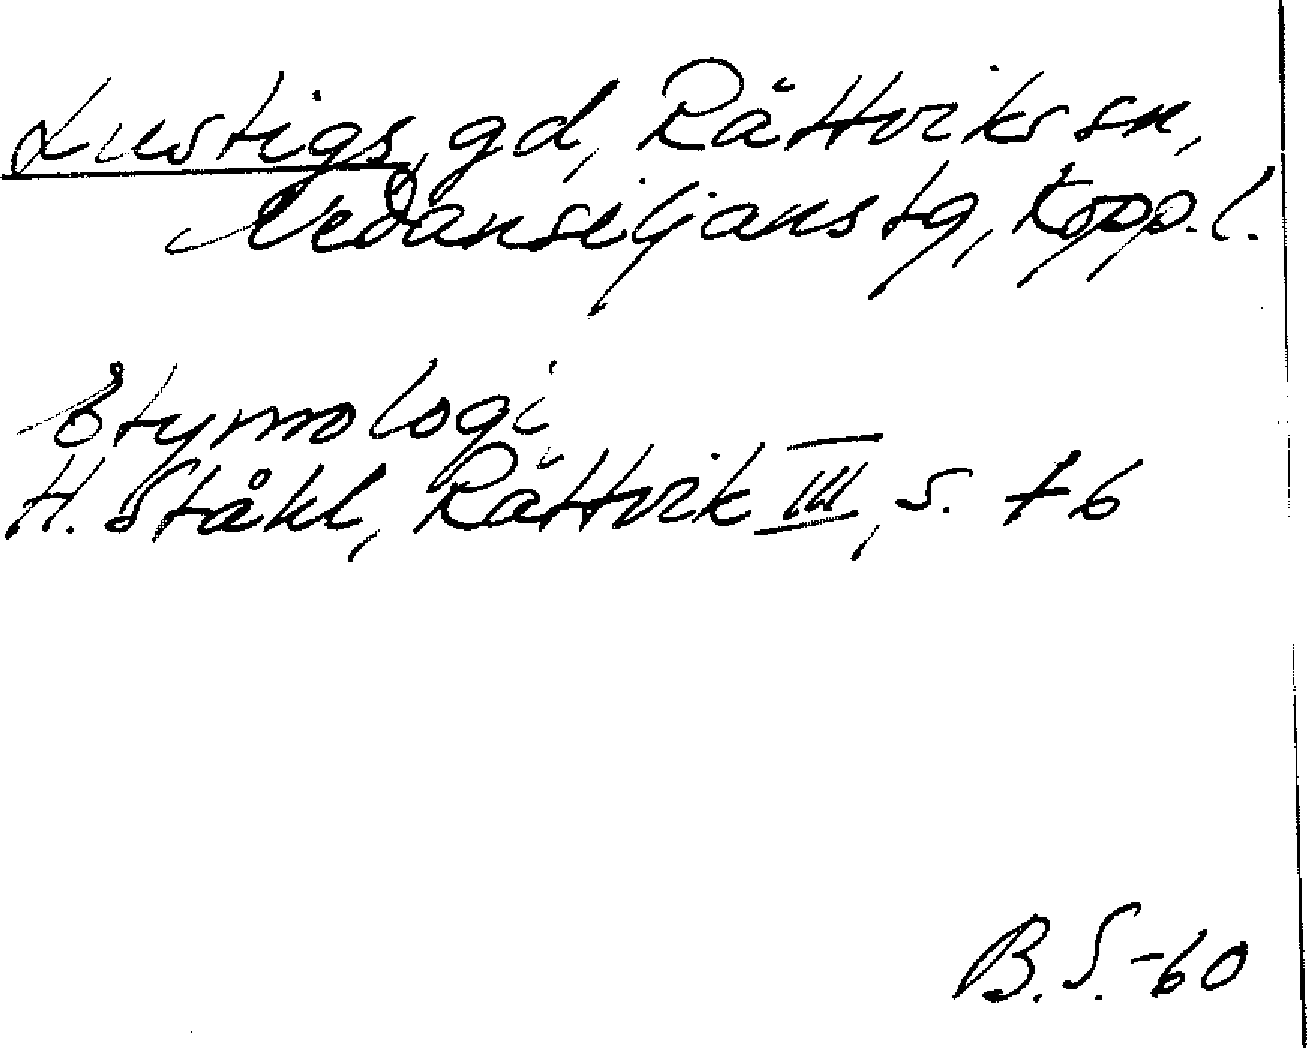 Lustigs, gd, Rättviks sn,
Nedansiljans tg, Kopp. l.
Etymologi
H. Ståhl, Rättvik III, s. 76
B. S. -60